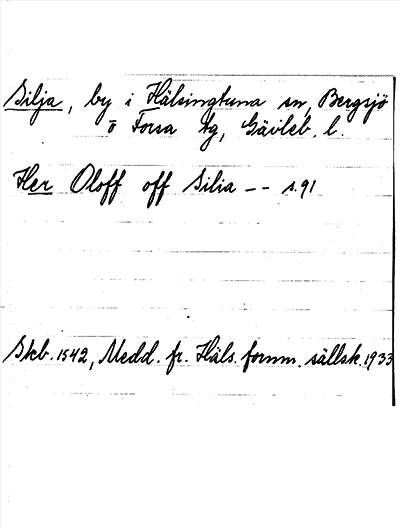 Silja, by i Hälsingtuna sn, Bergsjö
o Forsa tg, Gävleb. l.
Her Oloff off Silia -- s. 91
Skb. 1542, Medd. fr. Häls. fornm. sällsk. 1933